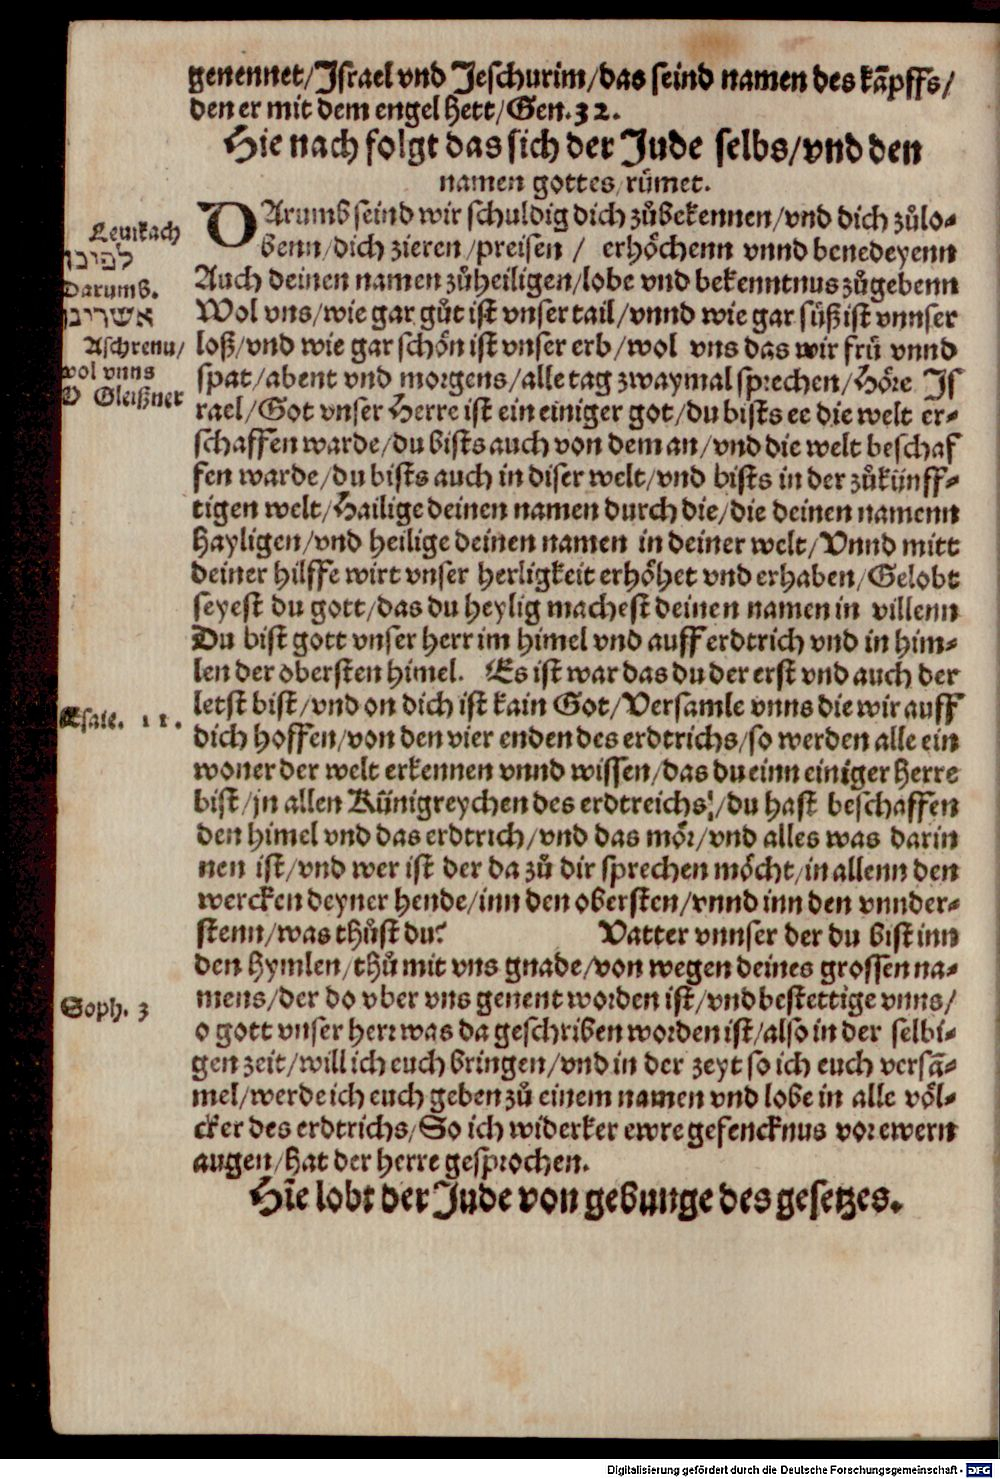 genennet/Jsrael vnd Jeschurim/das seind namen des kāpffs/
den er mit dem engel hett/Gen.32.
Hie nach folgt das sich der Jude selbs/vnd den
namen gottes/rümet.
DArumb seind wir schuldig dich zůbekennen/vnd dich zůlo-
benn/dich zieren/preisen/ erhöchenn vnnd benedeyenn
Auch deinen namen zůheiligen/lobe vnd bekenntnus zůgebenn
Wol vns/wie gar gůt ist vnser tail/vnnd wie gar süß ist vnnser
loß/vnd wie gar schön ist vnser erb/wol vns das wir frü vnnd
spat/abent vnd morgens/alle tag zwaymal sprechen/Höre Js
rael/Got vnser Herre ist ein einiger got/du bists ee die welt er-
schaffen warde/du bists auch von dem an/vnd die welt beschaf
fen warde/du bists auch in diser welt/vnd bists in der zůkünff-
tigen welt/Hailige deinen namen durch die/die deinen namenn
hayligen/vnd heilige deinen namen in deiner welt/Vnnd mitt
deiner hilffe wirt vnser herligkeit erhöhet vnd erhaben/Gelobt
seyest du gott/das du heylig machest deinen namen in villenn
Du bist gott vnser herr im himel vnd auff erdtrich vnd in him-
len der obersten himel. Es ist war das du der erst vnd auch der
letst bist/vnd on dich ist kain Got/Versamle vnns die wir auff
dich hoffen/von den vier enden des erdtrichs/so werden alle ein
woner der welt erkennen vnnd wissen/das du einn einiger Herre
bist/jn allen Künigreychen des erdtreichs/du hast beschaffen
den himel vnd das erdtrich/vnd das mör/vnd alles was darin
nen ist/vnd wer ist der da zů dir sprechen möcht/in allenn den
wercken deyner hende/inn den obersten/vnnd inn den vnnder-
stenn/was thůst du? Vatter vnnser der du bist inn
den hymlen/thů mit vns gnade/von wegen deines grossen na-
mens/der do vber vns genent worden ist/vnd bestettige vnns/
o gott vnser herr was da geschriben worden ist/also in der selbi-
gen zeit/will ich euch bringen/vnd in der zeyt so ich euch versā-
mel/werde ich euch geben zů einem namen vnd lobe in alle völ-
cker des erdtrichs/So ich widerker ewre gefencknus vor ewern
augen/hat der herre gesprochen.
Hie lobt der Jude von gebunge des gesetzes.
Lemkach
לפיכן
Darumb.
אשרינן
Aschrenu/
wol vnns
O Gleißner
Esaie. 11.
Soph. 3
Digitalisierung gefördert durch die Deutsche Forschungsgemeinschaft - DFG